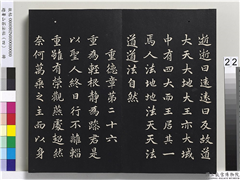 逝逝曰遠遠曰反故道
大天大地大王亦大域
中有四大而王居其一
焉人法地地法天天法
道道法自然
重德章第二十六
重為輕根靜為躁君是
以聖人終日行不離輜
重雖有榮觀燕處超然
奈何萬乘之主而以身
22